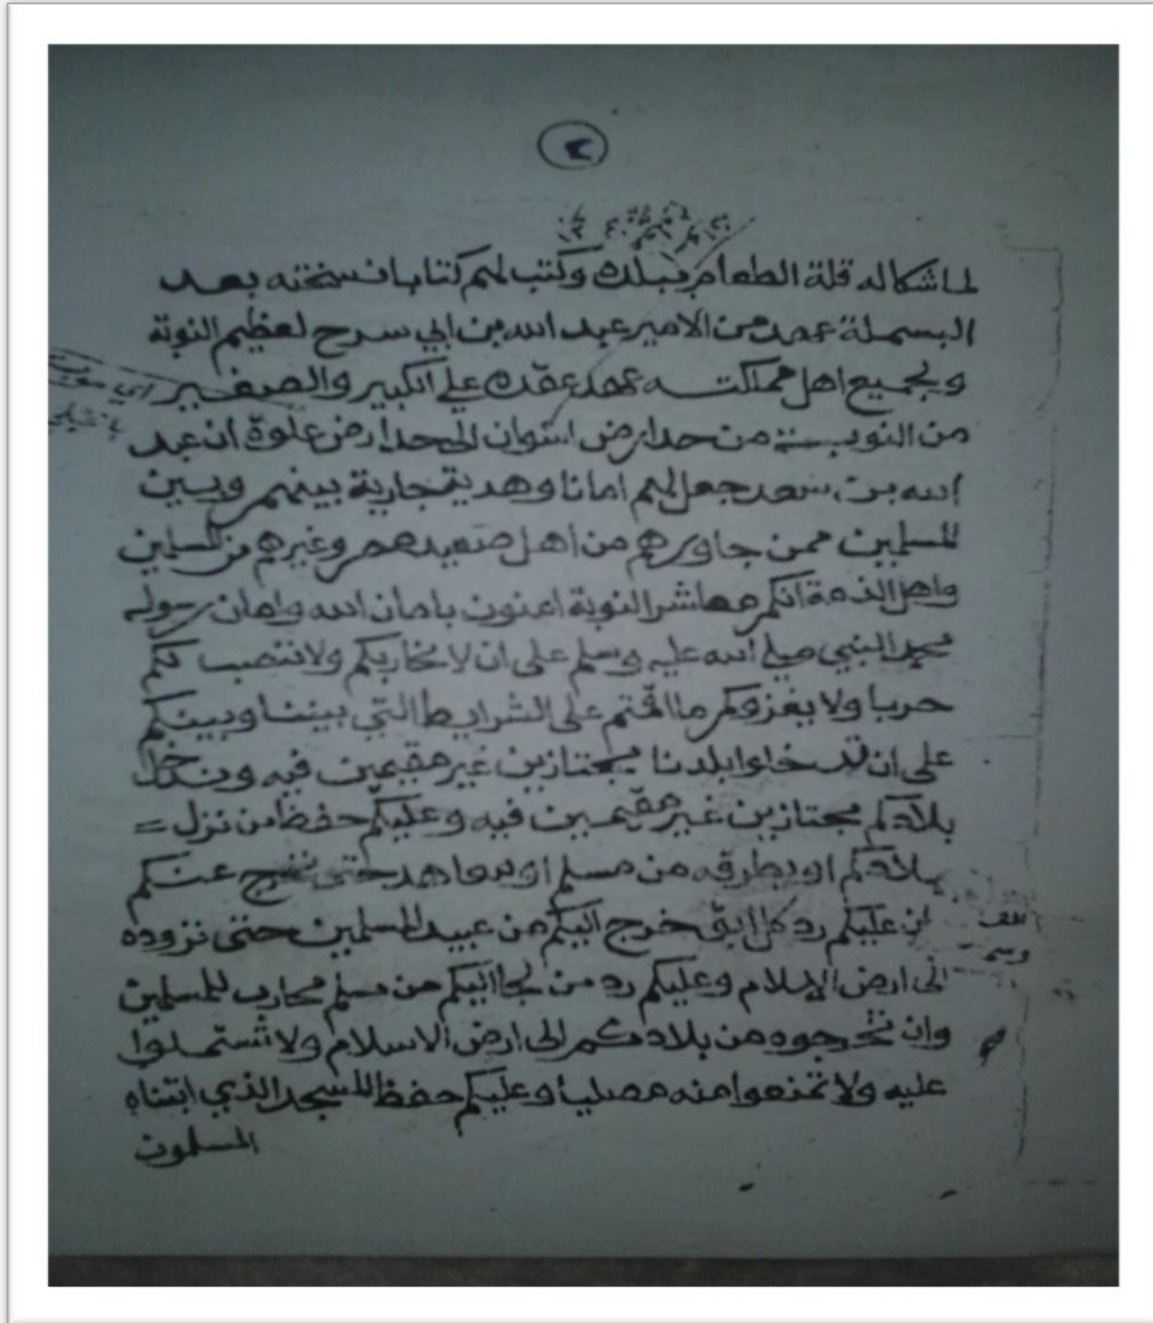 ٢
لما شكا له قلة الطعام ببلده وكتب لهم كتابا نسخته بعد
البسملة عهد من الامير عبد الله بن ابي سرح لعظيم النوبة
ولجميع اهل مملكته عهد عقده علي الكبير والصغير
من النوبة من حد ارض اسوان الى حد ارض علوة ان عبد
الله بن سعد جعل لهم امانا وهدية جارية بينهم وبين
المسلمين ممن جاورهم من اهل صعيد مصر وغيرهم من المسلمين
واهل الذمة انكم معاشر النوبة امنون بامان الله وامان رسوله
محمد النبي صلي الله عليه وسلم على ان لا نحاربكم ولا ننصب لكم
حربا ولا يغزوكم ما اقمتم على الشرايط التي بيننا وبينكم
على ان تدخلوا بلدنا مجتازين غير مقيمين فيه وندخل
بلادكم مجتازين غير مقيمين فيه وعليكم حفظ من نزل =
بلادكم او يطرقه من مسلم او معاهد حتى يخرج عنكم
ان عليكم رد كل ابق خرج اليكم من عبيد المسلمين حتى تردوه
الى ارض الاسلام وعليكم رد من لجا اليكم من مسلم محارب للمسلمين
وان تخرجوه من بلادكم الى ارض الاسلام ولا تستملوا
عليه ولا تمنعوا منه مصليا وعليكم حفظ المسجد الذي ابتناه
المسلمون